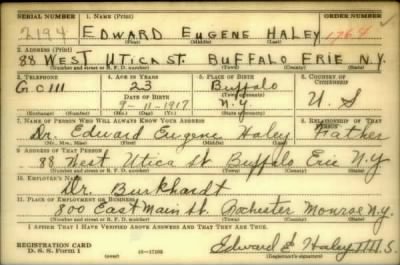 SERIAL NUMBER 1. NAME (Print) ORDER NUMBER
2194 EDWARD EUGENE HALEY 1764
(First) (Middle) (Last)
2. ADDRESS (Print)
88 WEST UTICA ST. BUFFALO ERIE N.Y.
(Number and street or R. F. D. number) (Town) (County) (State)
3. TELEPHONE 4. AGE IN YEARS 5. PLACE OF BIRTH 6. COUNTRY OF CITIZENSHIP
23 Buffalo
DATE OF BIRTH (Town or county)
9-11-1917 N.Y. U. S
(Exchange) (Number) (Mo.) (Day) (Yr.) (State or country)
7. NAME OF PERSON WHO WILL ALWAYS KNOW YOUR ADDRESS 8. RELATIONSHIP OF THAT PERSON
Dr. Edward Eugene Haley Father
(Mr., Mrs., Miss) (First) (Middle) (Last)
9. ADDRESS OF THAT PERSON
88 West Utica St Buffalo Erie N.Y
(Number and street or R. F. D. number) (Town) (County) (State)
10. EMPLOYER'S NAME
Dr. Burkhardt
11. PLACE OF EMPLOYMENT OR BUSINESS
800 East Main St. Rochester Monroe N.Y.
(Number and street or R. F. D. number) (Town) (County) (State)
I AFFIRM THAT I HAVE VERIFIED ABOVE ANSWERS AND THAT THEY ARE TRUE.
REGISTRATION CARD
D. S. S. Form 1 (over) Edward E Haley
(Registrant's signature)